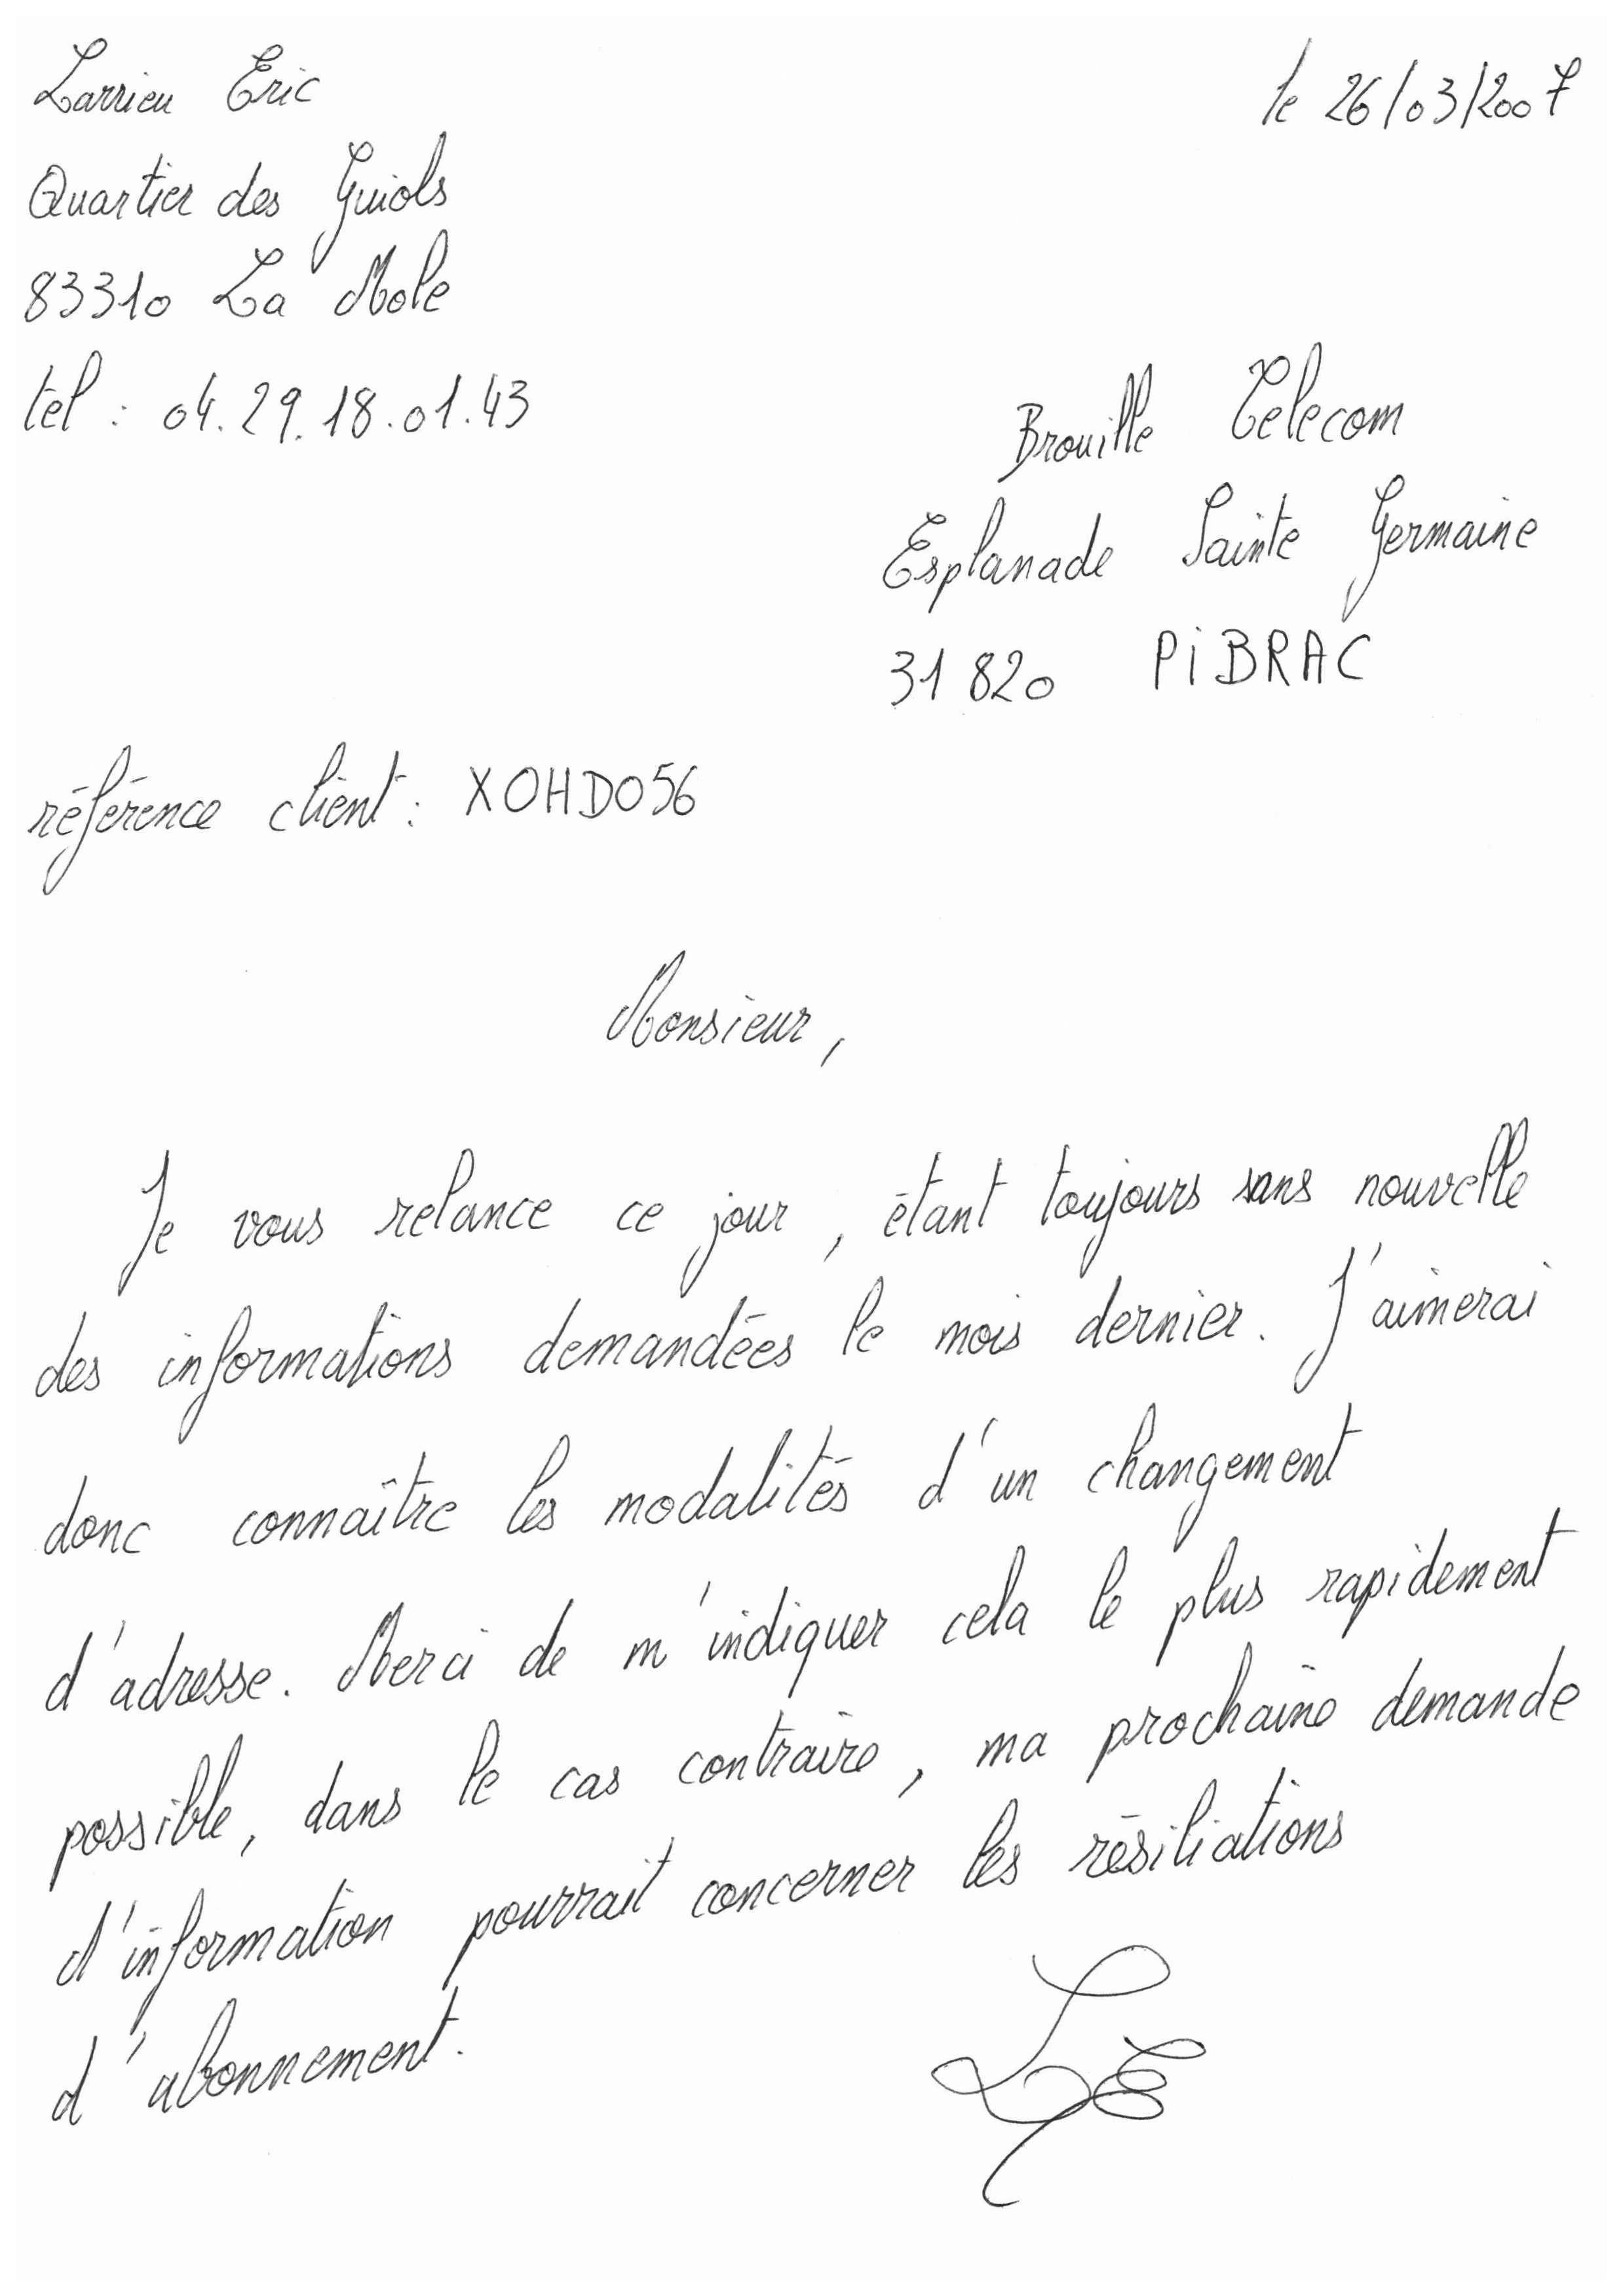 Larrieu Eric
le 26/03/2007
Quartier des Guiols
83310 La Mole
tél : 04.29.18.01.43
Brouille Telecom
Esplanade Sainte Germaine
31 820 PiBRAC
référence client : XOHDO56
Monsieur,
Je vous relance ce jour, étant toujours sans nouvelle
des informations demandées le mois dernier. J'aimerai
donc connaître les modalités d'un changement
d'adresse. Merci de m'indiquer cela le plus rapidement
possible, dans le cas contraire, ma prochaine demande
d'information pourrait concerner les résiliations
d'abonnement.
LE